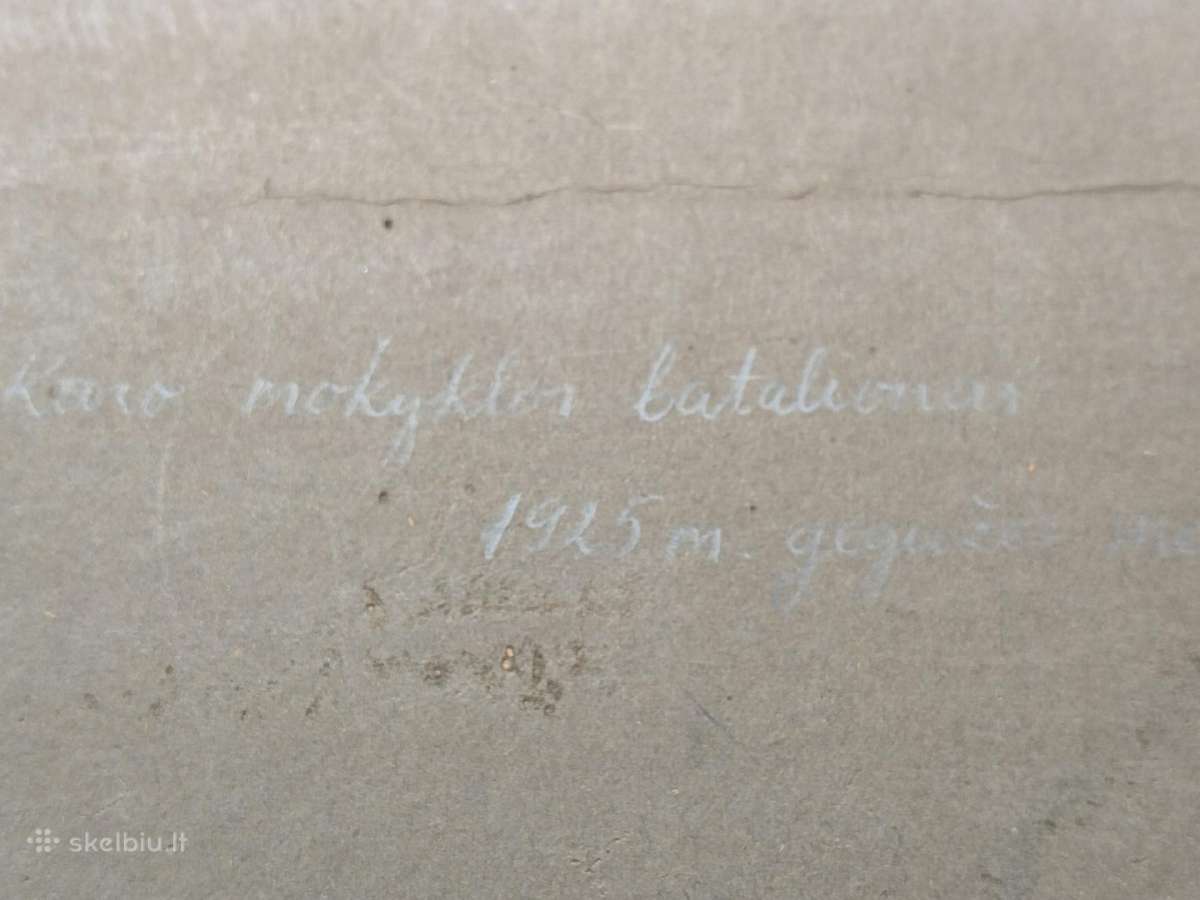 Karo mokyklos batalionas
1925 m. gegužės
skelbiu.lt